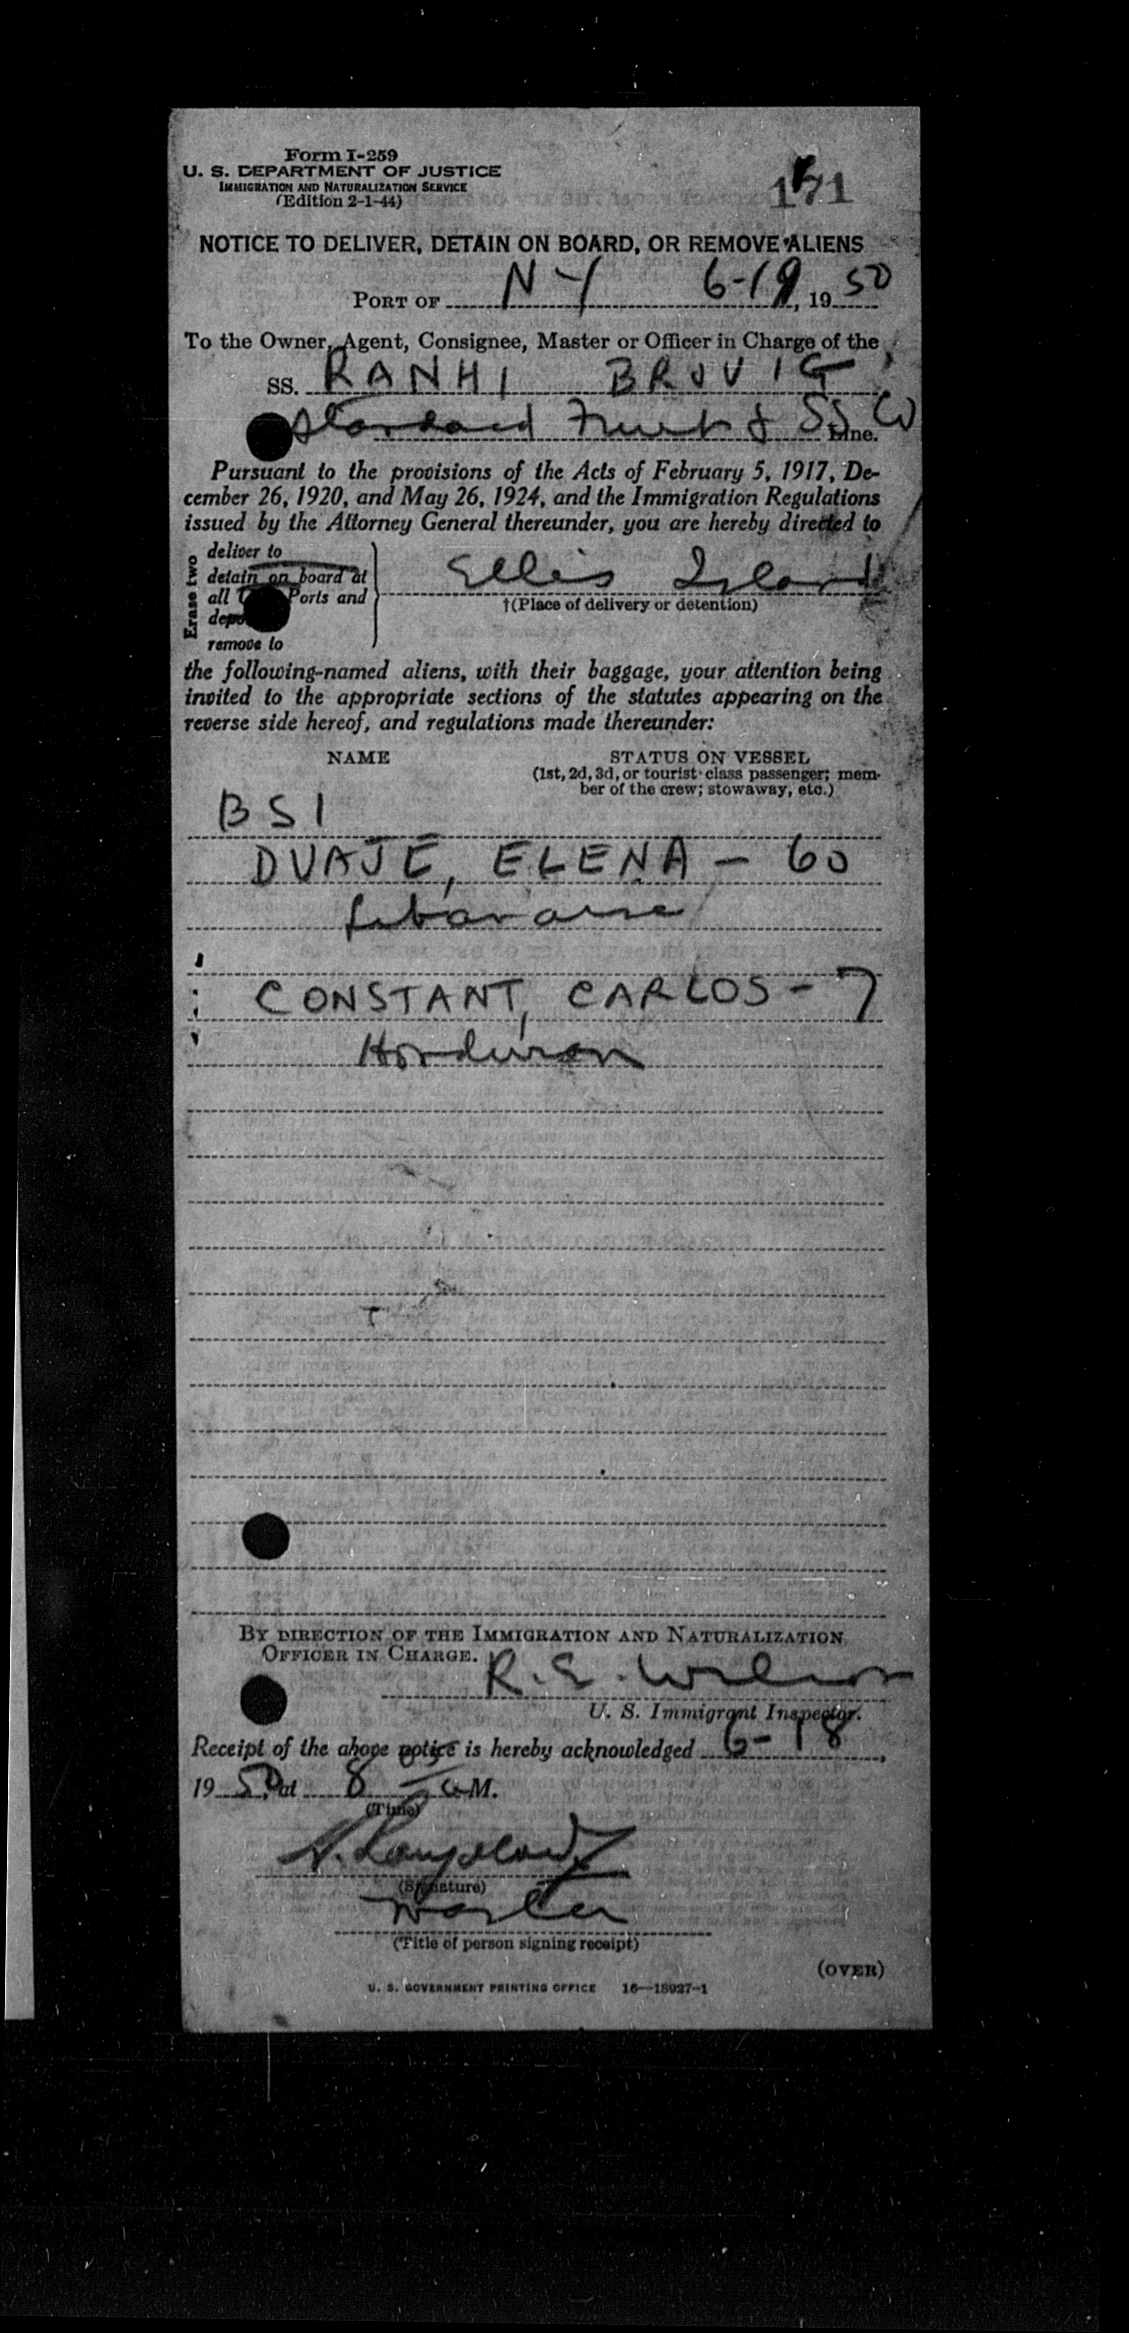 Form I-259
U. S. DEPARTMENT OF JUSTICE
IMMIGRATION AND NATURALIZATION SERVICE
(Edition 2-1-44)
171
NOTICE TO DELIVER, DETAIN ON BOARD, OR REMOVE ALIENS
PORT OF NY 6-19, 1950
To the Owner, Agent, Consignee, Master or Officer in Charge of the
SS. RANHI BROVIG
Standard Fruit & SS Co Line.
Pursuant to the provisions of the Acts of February 5, 1917, De-
cember 26, 1920, and May 26, 1924, and the Immigration Regulations
issued by the Attorney General thereunder, you are hereby directed to
Erase two
deliver to
detain on board at
all Ports and
remove to
Ellis Island
†(Place of delivery or detention)
the following-named aliens, with their baggage, your attention being
invited to the appropriate sections of the statutes appearing on the
reverse side hereof, and regulations made thereunder:
NAME STATUS ON VESSEL
(1st, 2d, 3d, or tourist class passenger; mem-
ber of the crew; stowaway, etc.)
BSI
DUAJE, ELENA - 60
Lebanese
CONSTANT, CARLOS - 7
Honduran
BY DIRECTION OF THE IMMIGRATION AND NATURALIZATION
OFFICER IN CHARGE.
R. E. Wilson
U. S. Immigrant Inspector.
Receipt of the above notice is hereby acknowledged 6-18,
1950, at 8 - a M.
(Time)
(Signature)
Master
(Title of person signing receipt)
(OVER)
U. S. GOVERNMENT PRINTING OFFICE 16-18927-1